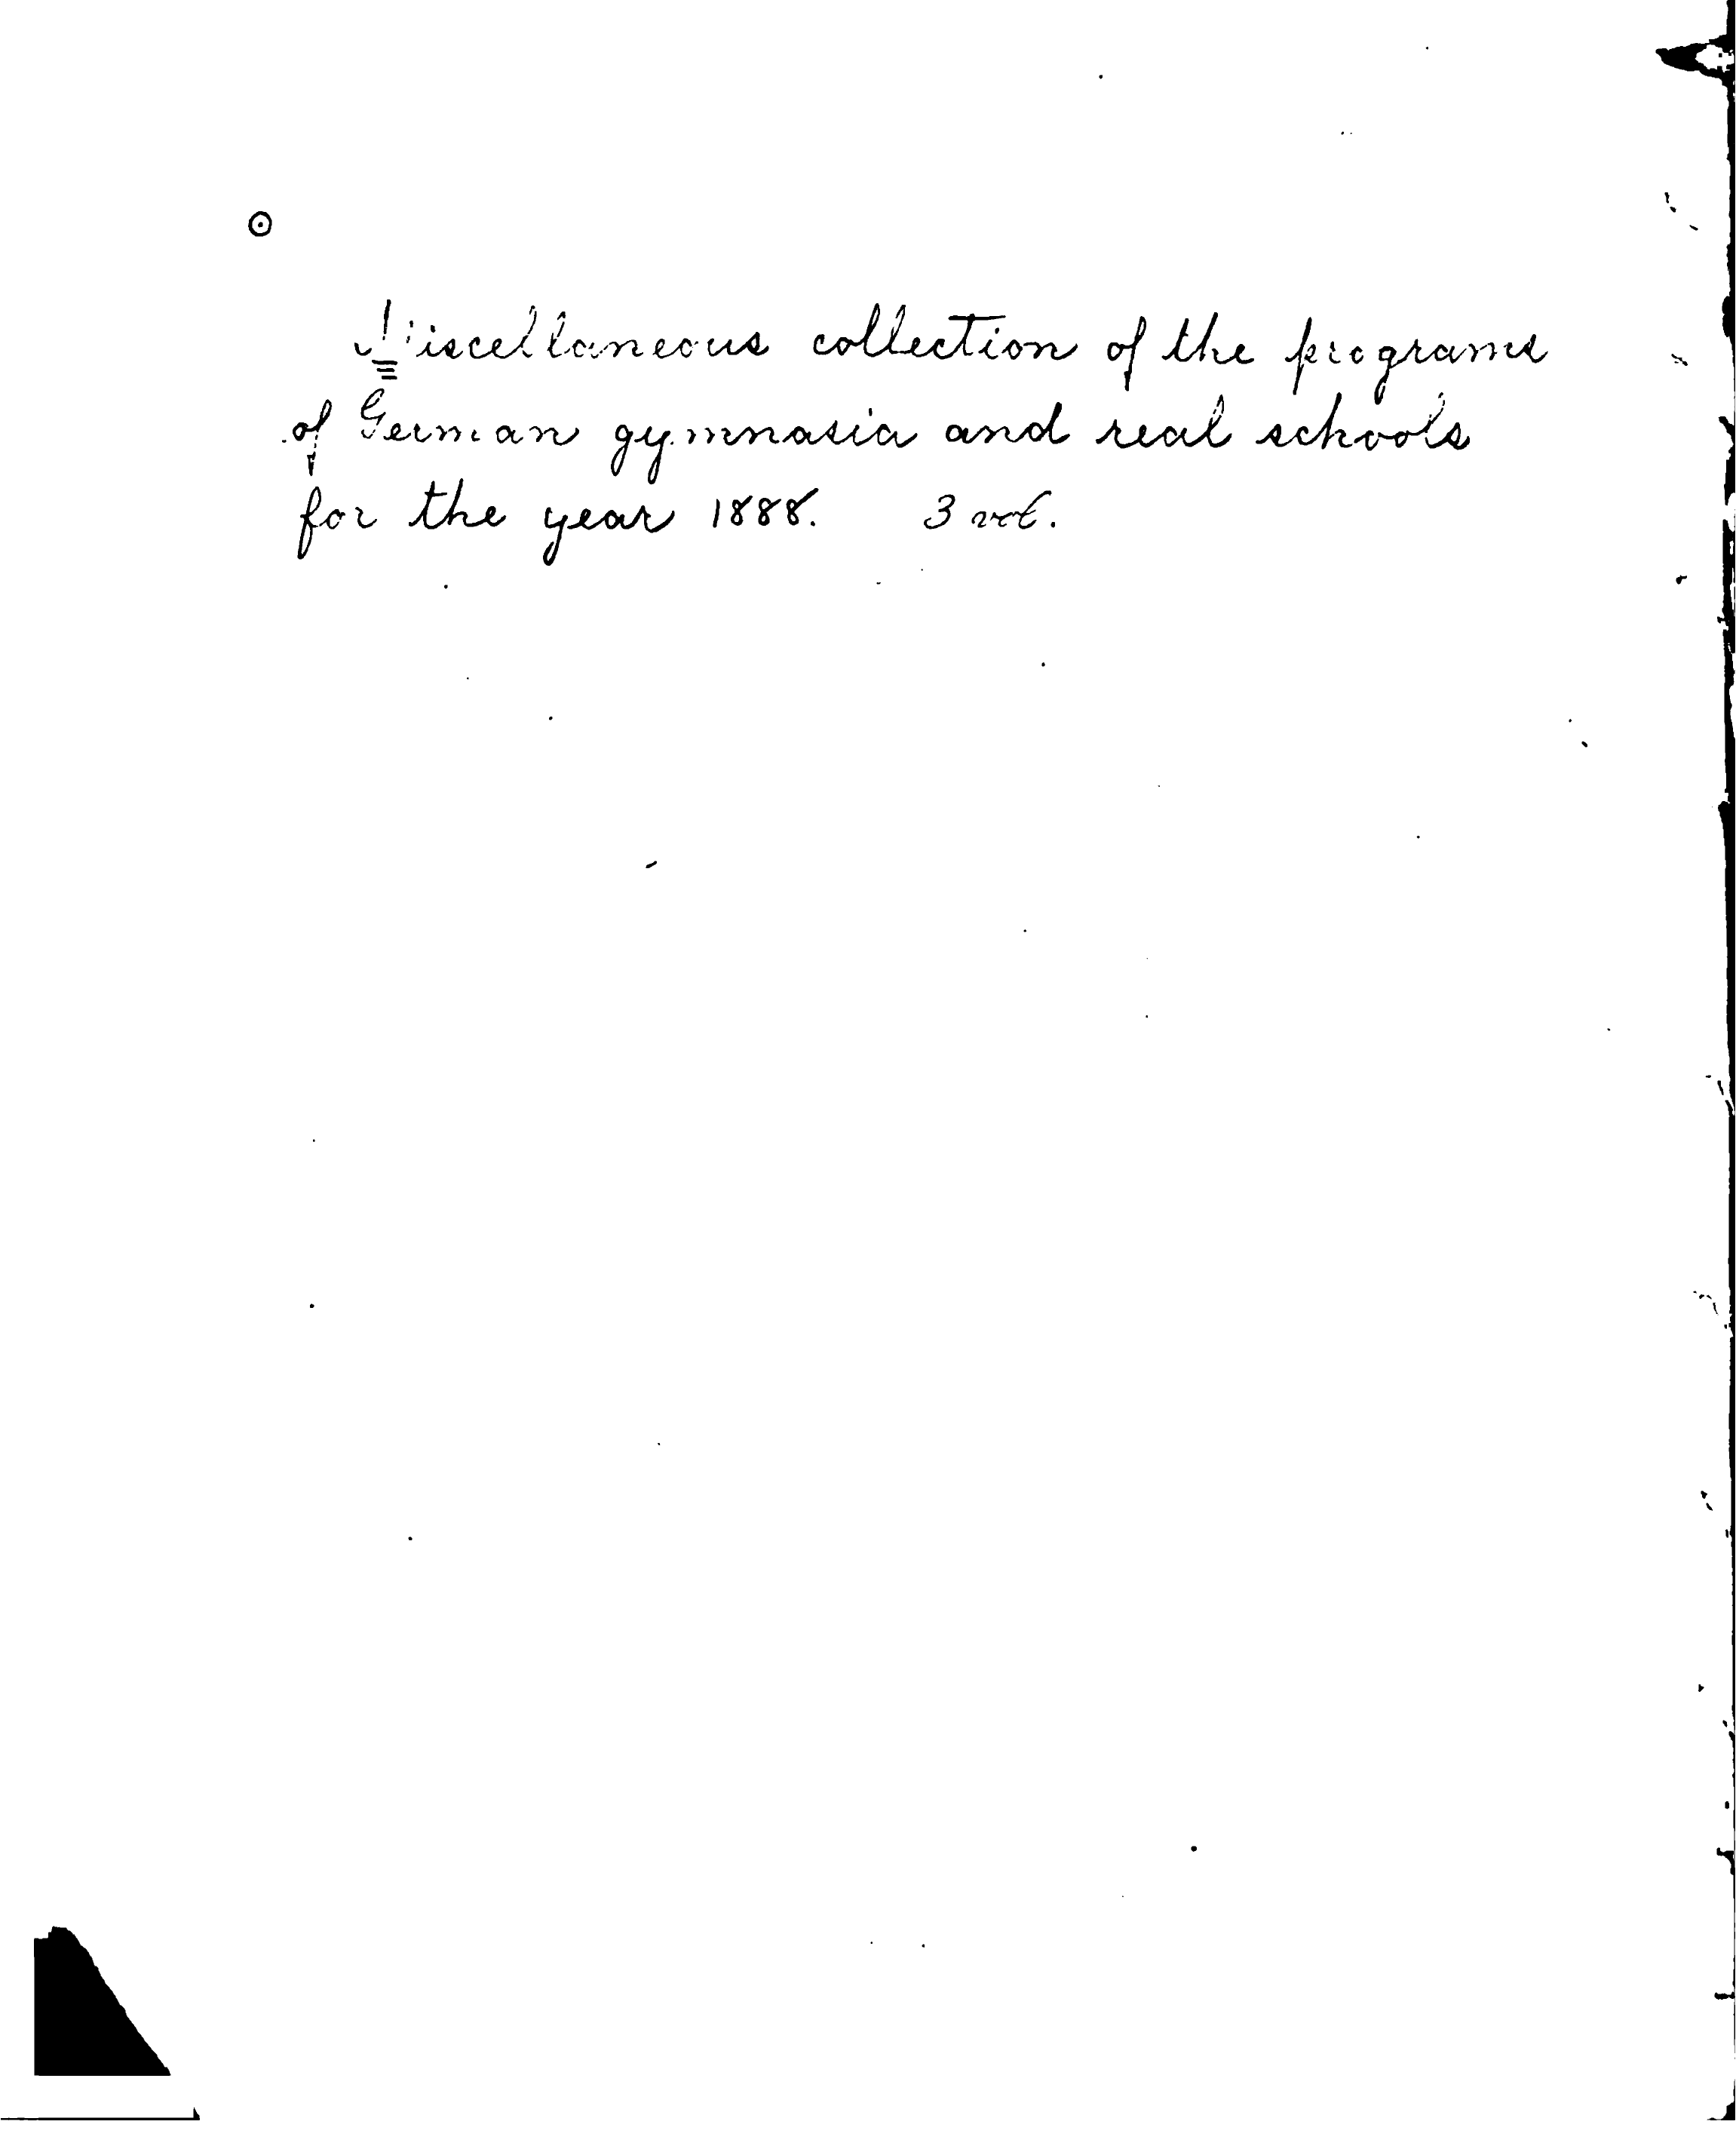 Miscellaneous collection of the programs
of German gymnasia and real schools
for the year 1888. 3 vol.